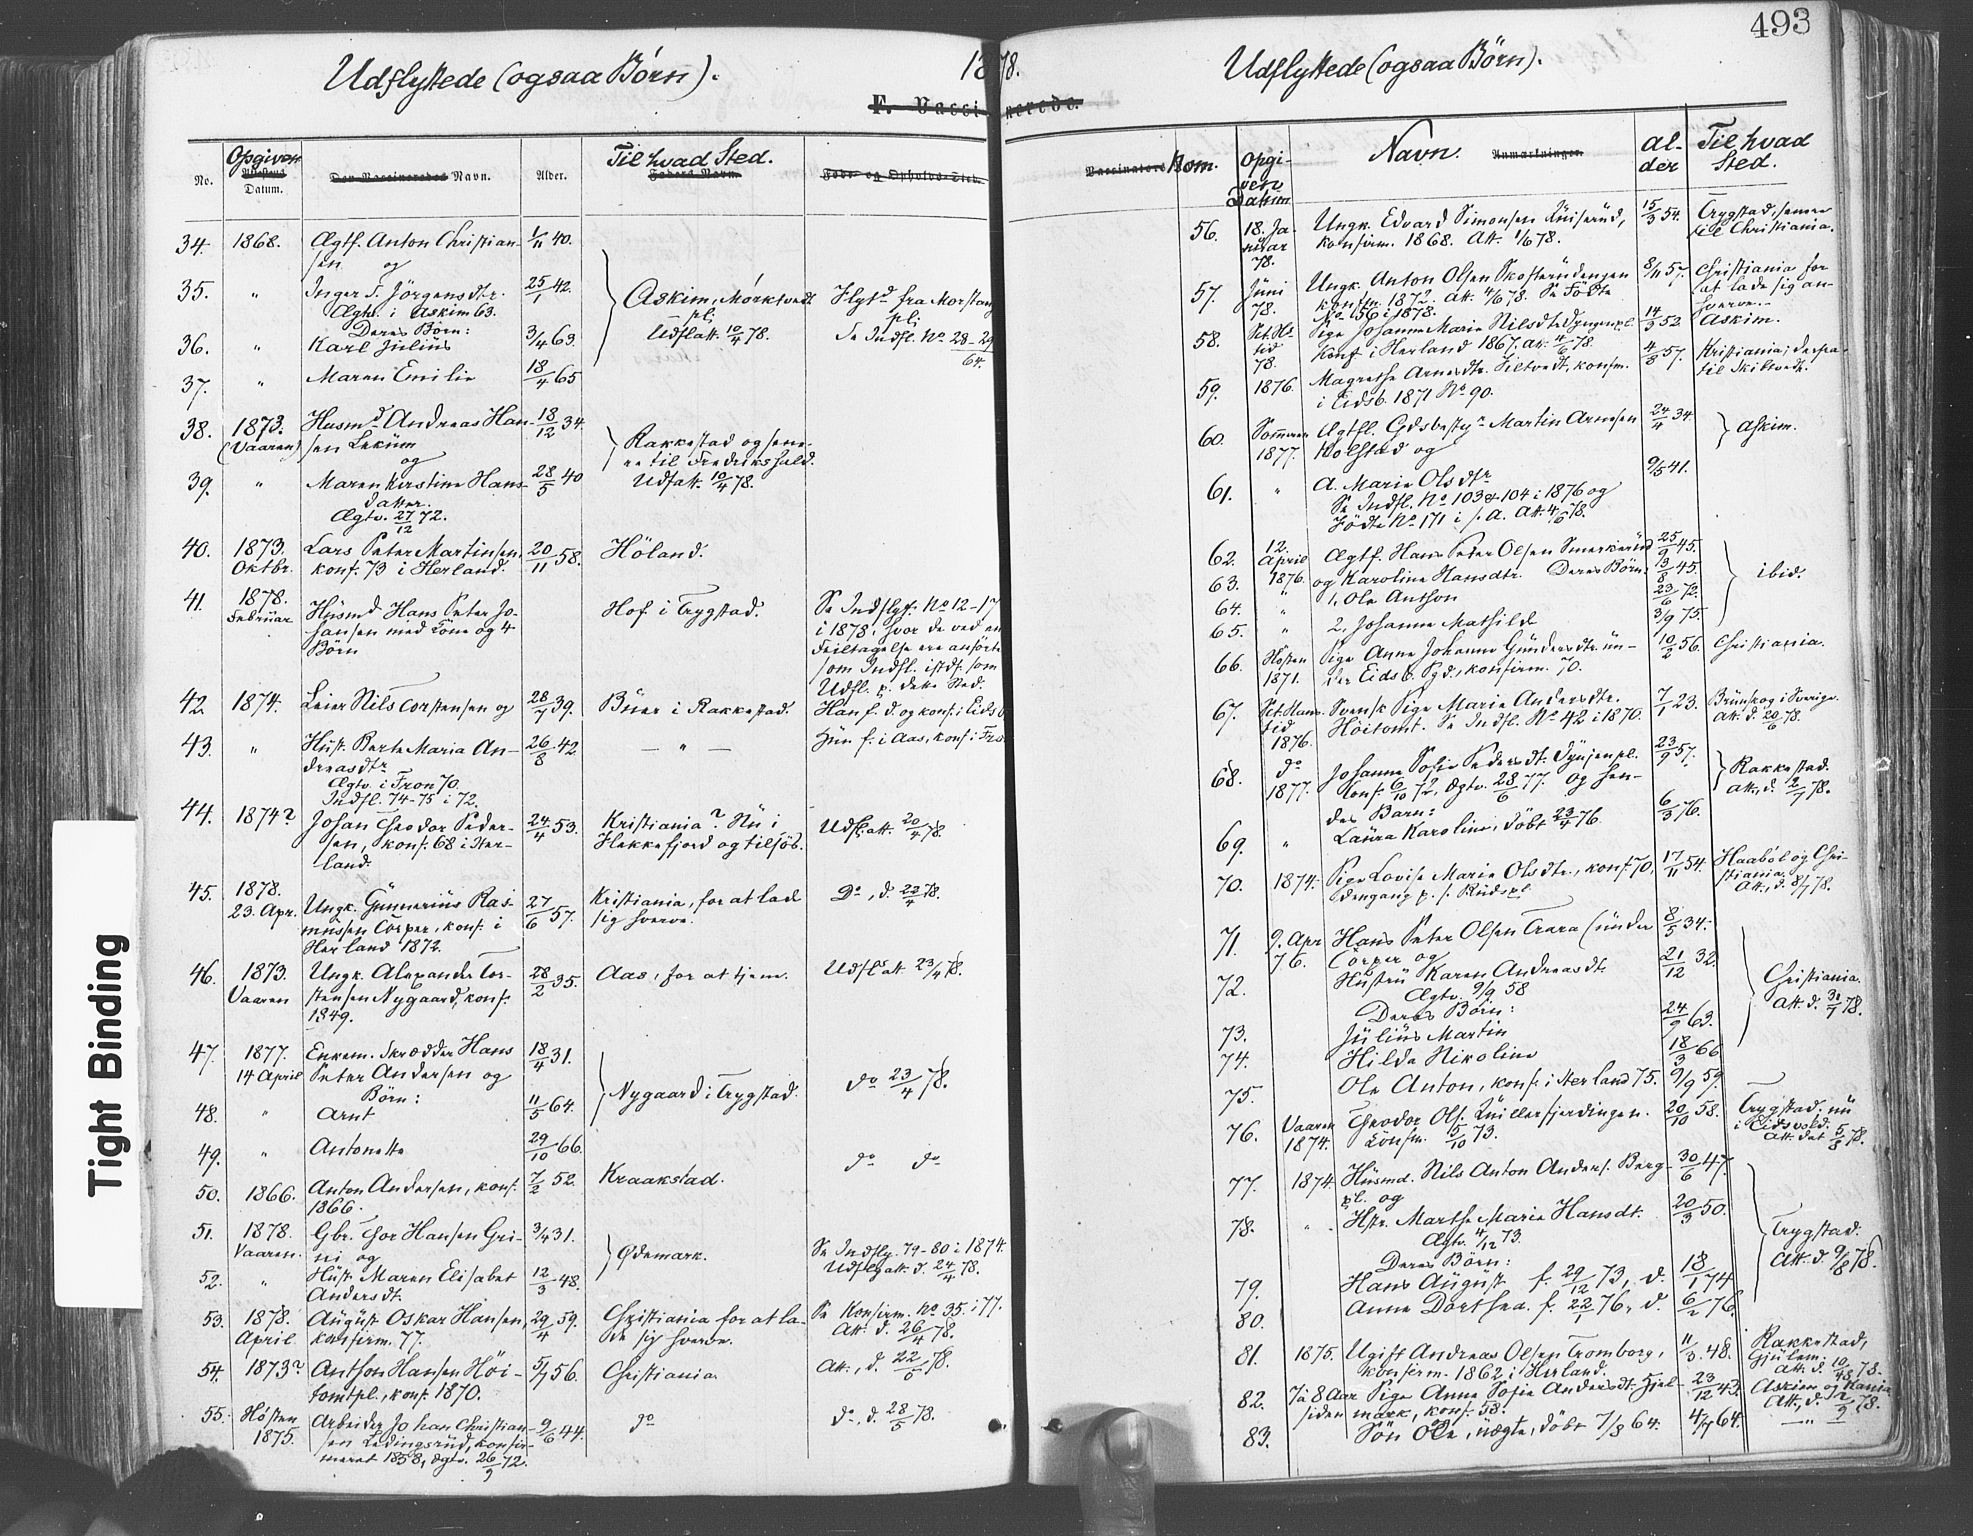 493
Udflyttede (ogsaa Børn).
1878.
Udflyttede (ogsaa Børn).
F. Vaccinerede.
No.
Opgiven
Attestens
Datum.
Den Vaccineredes Navn.
Alder.
Til hvad Sted.
Faders Navn.
Føde- og Opholds-Sted.
34. 1868. Ægtf. Anton Christian- 1/11 40.
sen og
35. " Inger S. Jørgensdtr. 25/1 42. Askim, Mørktvedt Flytd fra Morstang
Ægtv. i Askim 63. pl; pl;
Deres Børn: Udflatt. 10/4 78. Se Indfl. No 28-29
36. " Karl Julius 3/4 63. 64.
37. " Maren Emilie 18/4 65
38. 1873. Husmd Andreas Han- 18/12 34.
(Vaaren) sen Lekum Rakkestad og sene-
og re til Fredrikshald.
39. " Maren Kerstine Hans- 28/5 40 Udfatt. 10/4 78.
datter.
Ægtv. 27/12 72.
40. 1873. Lars Peter Martinsen, 20/11 58. Höland.
Oktbr. konf. 73 i Herland.
41. 1878. Husmd Hans Peter Jo- Hof i Trygstad. Se Indflyt. No 12-17
Februar hansen med Kone og 4 i 1878, hvor de ved en
Børn Feiltagelse ere anførte
som Indfl. istdf. som
Udfl. p. dette Sted.
42. 1874. Leier Nils Torstensen og 28/7 39. Buer i Rakkestad. Han f. d. og konf. i Eidsb.
43. " Hust. Berte Maria An- 26/8 42. — " — Hun f. i Aas, konf. i Fron
dreasdtr
Ægtv. i Fron 70.
Indfl. 74-75 i 72.
44. 1874? Johan Theodor Peder- 24/4 53. Kristiania? Nu i Udfl. att. 20/4 78.
sen, konf. 68 i Her- Flekkefjord og tilsjös.
land.
45. 1878. Ungk. Gunnerius Ras- 27/6 57. Kristiania, for at lade Do, d. 22/4 78.
23. Apr. mussen Torper, konf. i sig hverve.
Herland 1872.
46. 1873. Ungk. Alexander Tor- 28/2 35. Aas, for at tjene. Udflsatt 23/4 78.
Vaaren stensen Nygaard, konf.
1849.
47. 1877. Enkem. Skrædder Hans 18/4 31.
14 April Peter Andersen og Nygaard i Trygstad. do 23/4 78.
Børn:
48. " Arnt 11/5 64.
49. " Antonette 29/10 66. do do
50. 1866. Anton Andersen, konf. 7/2 52. Kraakstad.
1866.
51. 1878. Gbr. Thor Hansen Gri- 3/4 31.
Vaaren. ni og Ødemark. Se Indflg. 79-80 i 1874.
52. " Hust. Maren Elisabet 12/3 48. Udflgatt. d. 24/4 78.
Andersdt.
53. 1878. August Oskar Hansen, 29/4 59. Christiania for at la- Se Konfirm. No 35. i 77.
April konfirm. 77. de sig hverve. Att. d. 26/4 78.
54. 1873? Anthon Hansen Höi- 5/7 56. Christiania Att., d. 22/5 78.
tomtpl., konf. 1870.
55. Høsten Arbeider Johan Christian- 9/6 44. do do., d. 28/5 78.
1875. sen Ledingsrud, konfir-
meret 1858, ægtv. 26/9 72.
Vaccinators Nom.
Opgi-
ven
Datum
Navn. Anmærkninger.
al-
der
Til hvad
Sted.
56. 18. Ja- Ungk. Edvard Simonsen 15/3 54. Trygstad, senere
nuar konfirm. 1868. Att. 1/6 78. til Christiania.
78.
57. Juni Ungk. Anton Olsen 8/11 57. Christiania for
78. konfm. 1872. att. 4/6 78. Se Födte at lade sig an-
No 156 i 1878. hverve.
58. Sct. Hs- Pige Johanne Marie Nilsdtr 14/2 52. Askim.
tid Konf. i Herland 1867. att. 4/6 78.
78.
59. 1876. Magrethe Arnesdtr. Siltvedt, konfm. 4/8 57. Kristiania; derfra
i Eidsb. 1871 No 90. til Skibtvedt.
60. Sommeren Ægtfl. Gdsbestyr Martin Arnesen 24/4 34. Askim.
1877. Kolstad og
61. " A. Marie Olsdtr 9/5 41.
Se Indfl. No 103 & 104 i 1876 og
Födte No 171 i s. A. att. 4/6 78.
62. 12. April Ægtf. Hans Peter Olsen Smerkerud 25/9 45.
63. 1876. og Karoline Hansdtr. Deres Børn: 13/8 45. ibid.
64. " 1, Ole Anthon 23/6 72.
65. " 2, Johanne Mathilde 3/9 75.
66. Høsten Pige Anne Johanne Gundersdtr. un- 10/2 56. Christiania.
1871. der Eidsb. Pgd., konfirm. 70.
67. Sct. Hans- Svensk Pige Marie Andersdtr. 7/1 23. Brunskog i Sverige.
tid Höitomt. Se Indfl. No 42 i 1870. Att. d. 20/6 78.
1876.
68. do Johanne Sofie Pedersdt. 23/9 57. Rakkestad.
1877. Konf. 6/10 72, ægtv. 28/6 77. og hen- Att., d. 2/7 78.
des Barn:
69. " Laura Karoline, döbt 23/4 76. 6/3 76.
70. 1874. Pige Lovise Marie Olsdtr., konf. 70, 17/11 54. Haaböl og Chri-
dengang p. s. Rudspl. stiania. Att., d. 8/7 78.
71. 9. Apr Hans Peter Olsen Trara (under 8/5 34.
76. Torper og
72. Hustru Karen Andreasdt. 21/12 32. Christiania.
Ægtv. 9/9 58 Att. d. 30/7 78.
Deres Børn:
73. Julius Martin 24/9 63.
74. Hilda Nikoline 18/3 66
75. Ole Anton, konf. i Herland 75. 9/9 59.
76. Vaaren Theodor Ols. 20/10 58. Trygstad, nu
1874. Konfm. 5/10 73. i Eidsvold. Att. det 5/8 78.
77. 1874. Husmd. Nils Anton Anders. Berg- 30/6 47.
pl. og
78. " Hstr. Marthe Marie Hansdt. 20/3 50. Trygstad.
Ægtv. 4/12 73. Att. d. 9/8 78.
Deres Børn:
79. Hans August f. 29/12 73, d. 18/1 74
80. Anne Dorthea. f. 22/1 76, d. 6/2 76.
81. 1875. Ugift Andreas Olsen Tromborg, 11/3 48. Rakkestad,
konfirm. 1862 i Herland. Gjulem. Att. d. 10/8 78.
82. 7 a 8 Aar Pige Anne Sofie Andersdt. Hjel- 23/12 43. Askim og Kania
siden mark, konf. 58. Att., d. 2/9 78.
83. og Søn Ole, uægte, döbt 7/8 64. 4/7 64. — " —
Tight Binding